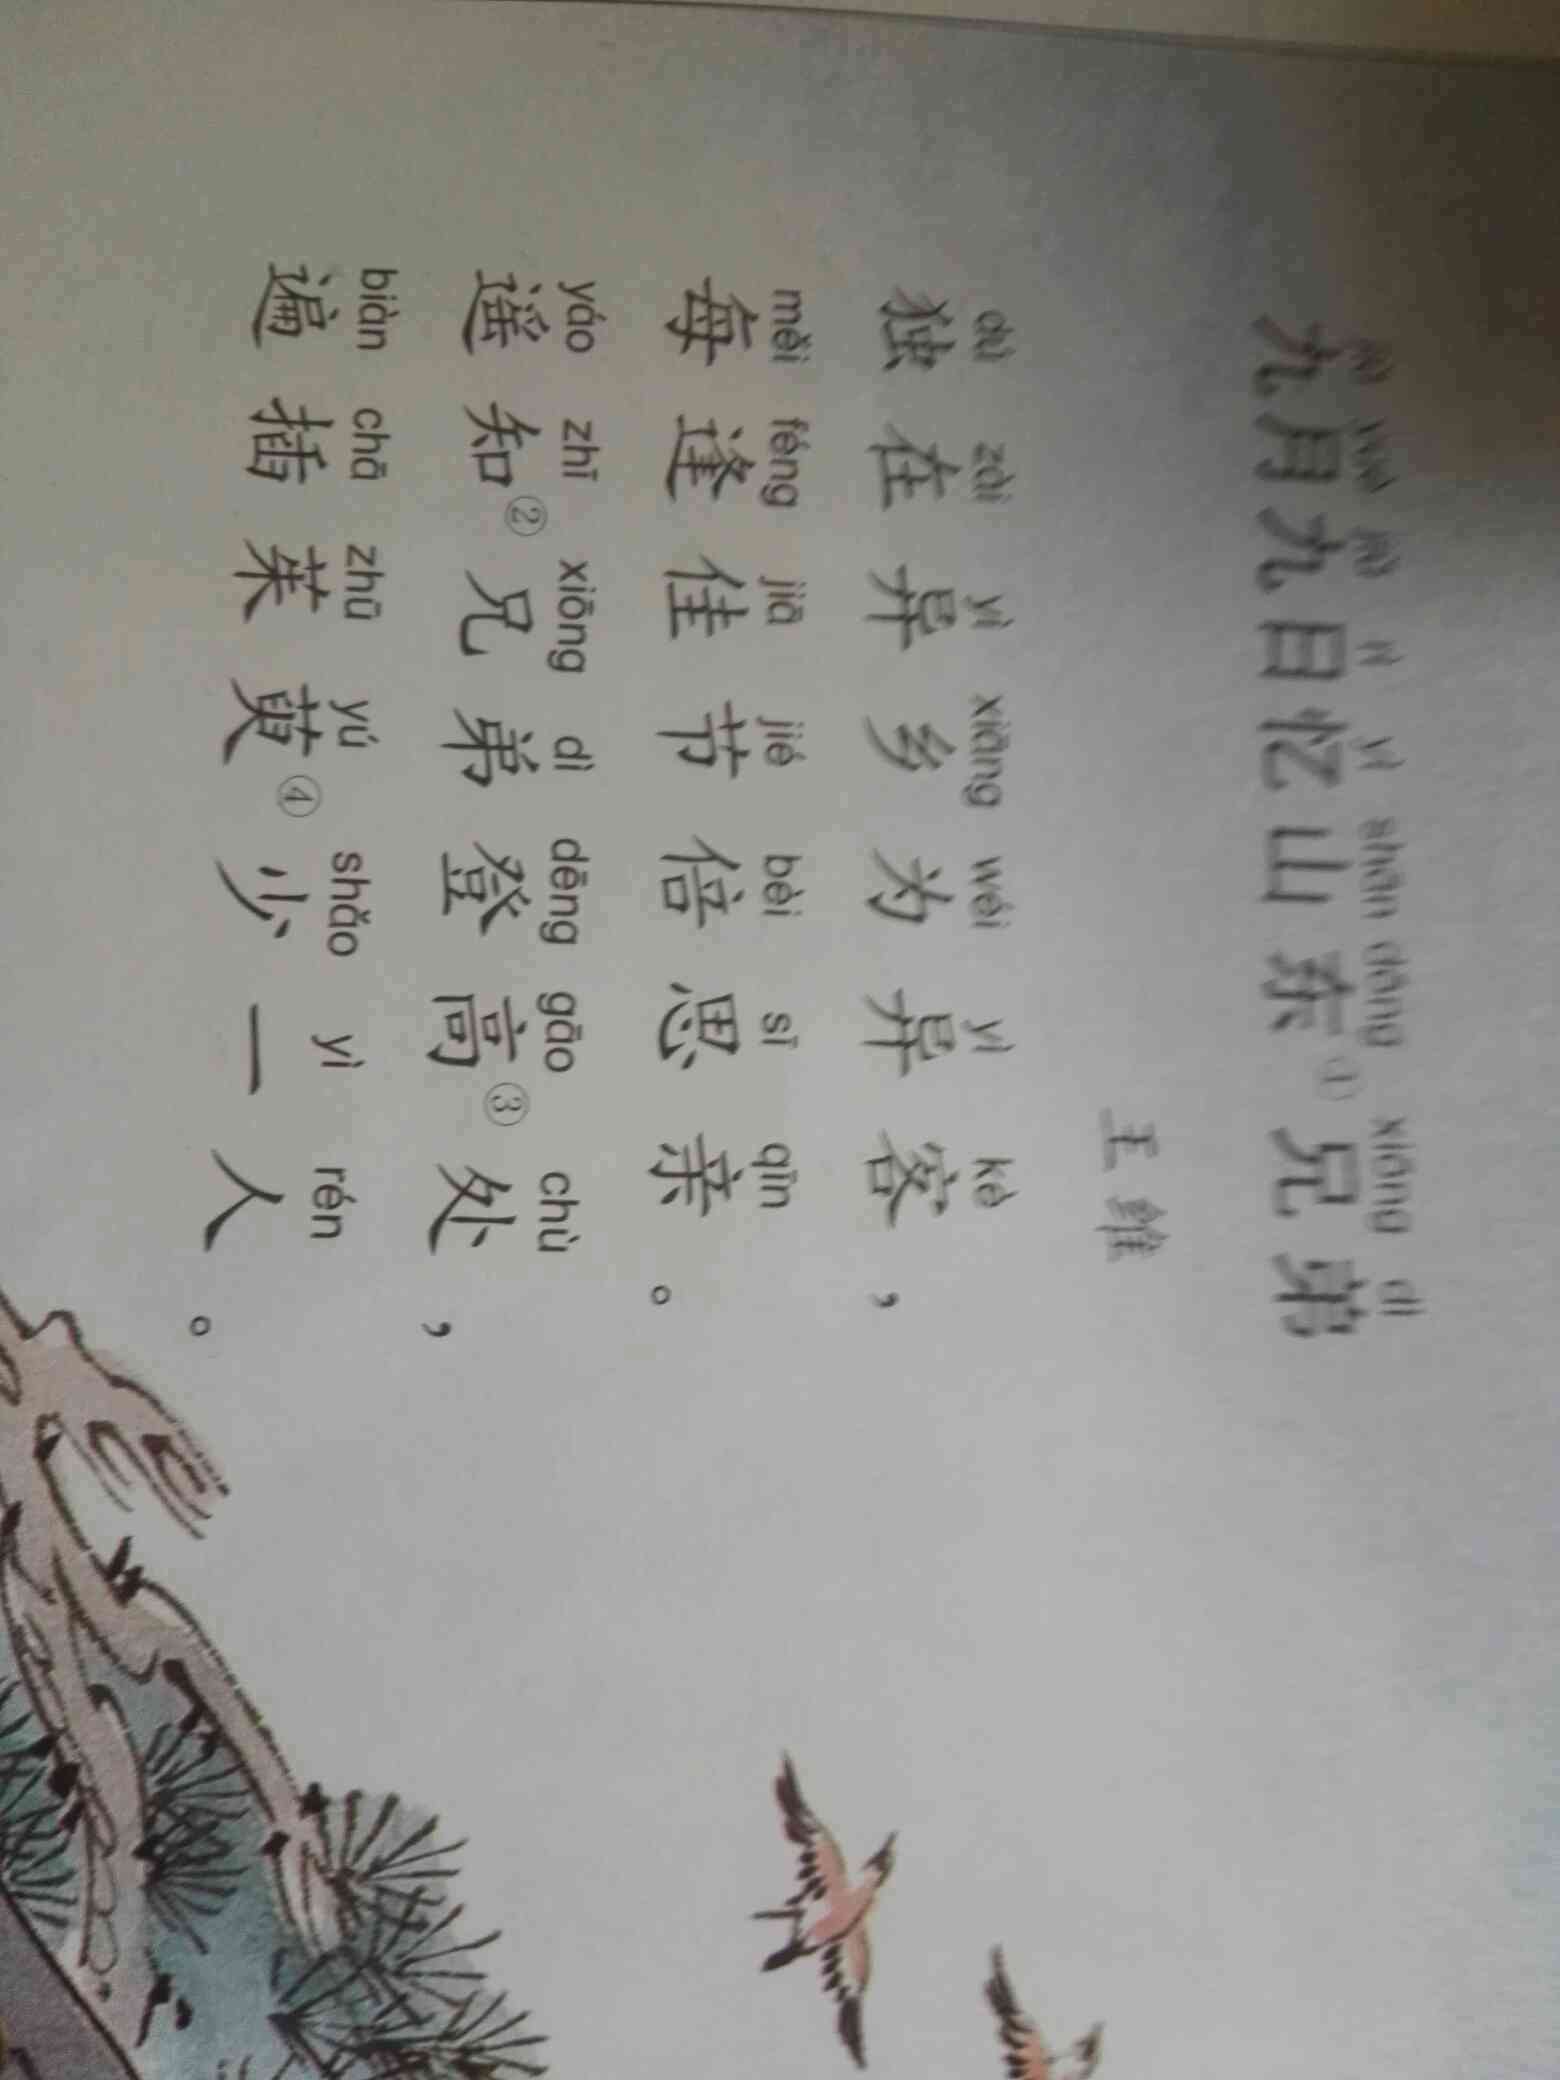 jiǔ yuè jiǔ rì yì shān dōng xiōng dì
九月九日忆山东①兄弟
王维
dú zài yì xiāng wéi yì kè
独在异乡为异客，
měi féng jiā jié bèi sī qīn
每逢佳节倍思亲。
yáo zhī xiōng dì dēng gāo chù
遥知②兄弟登高③处，
biàn chā zhū yú shǎo yì rén
遍插茱萸④少一人。